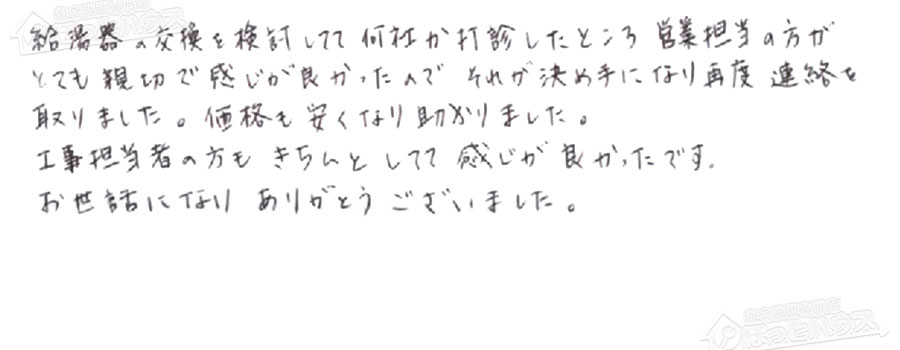 給湯器の交換を検討してて何社か打診したところ営業担当の方が
とても親切で感じが良かったのでそれが決め手になり再度連絡を
取りました。価格も安くなり助かりました。
工事担当者の方もきちんとしてて感じが良かったです。
お世話になりありがとうございました。
ほっとハウス